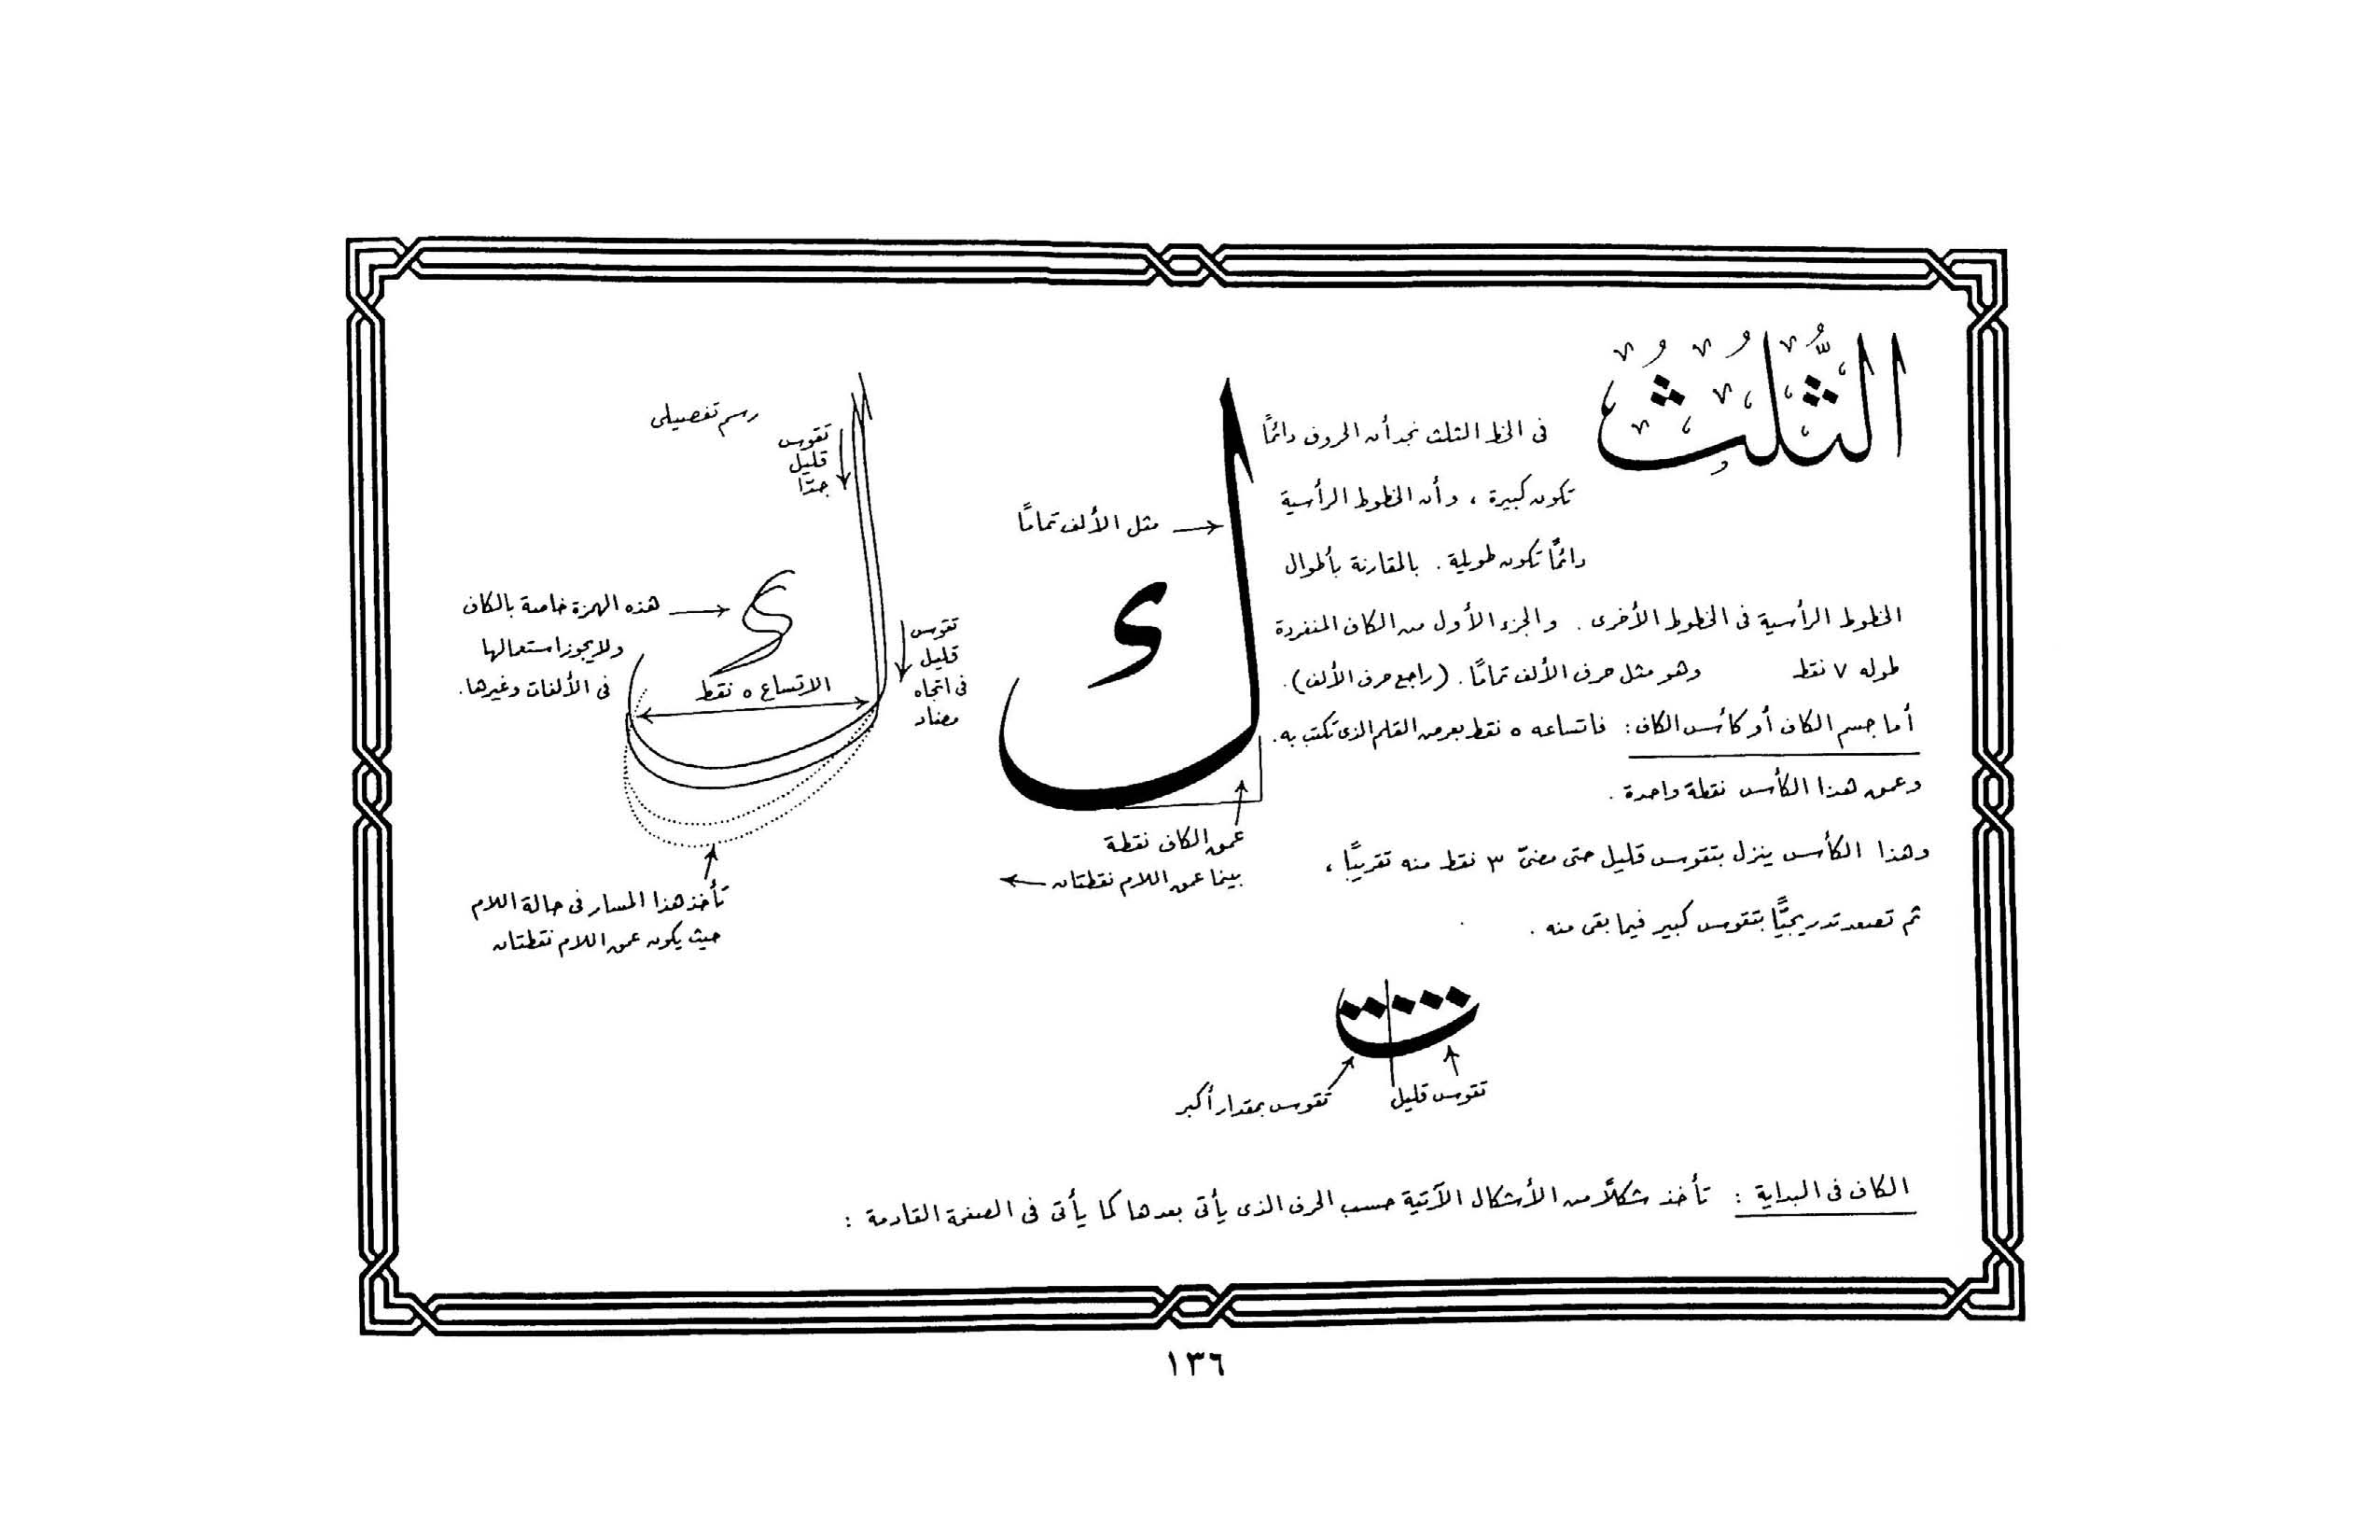 الثُّلُثُ
فى الخط الثلث نجد أن الحروف دائمًا
تكون كبيرة ، وأن الخطوط الرأسية
دائمًا تكون طويلة . بالمقارنة بأطوال
الخطوط الرأسية فى الخطوط الأخرى . والجزء الأول من الكاف المنفردة
طوله ٧ نقط وهو مثل حرف الألف تمامًا . (راجع حرف الألف) .
أما جسم الكاف أو كأس الكاف : فاتساعه ٥ نقط بعرض القلم الذى تكتب به .
وعمق هذا الكأس نقطة واحدة .
وهذا الكأس ينزل بتقوس قليل حتى مضىّ ٣ نقط منه تقريبًا ،
ثم تصعد تدريجيًّا بتقوس كبير فيما بقى منه .
ك
مثل الألف تمامًا
عمق الكاف نقطة
بينما عمق اللام نقطتان
رسم تفصيلى
تقوس
قليل
جدًّا
تقوس
قليل
فى اتجاه
مضاد
هذه الهمزة خاصة بالكاف
ولايجوز استعمالها
فى الألفات وغيرها .
الاتساع ٥ نقط
تأخذ هذا المسار فى حالة اللام
حيث يكون عمق اللام نقطتان
تقوس قليل
تقوس بمقدار أكبر
الكاف فى البداية : تأخذ شكلاً من الأشكال الآتية حسب الحرف الذى يأتى بعدها كما يأتى فى الصفحة القادمة :
١٣٦